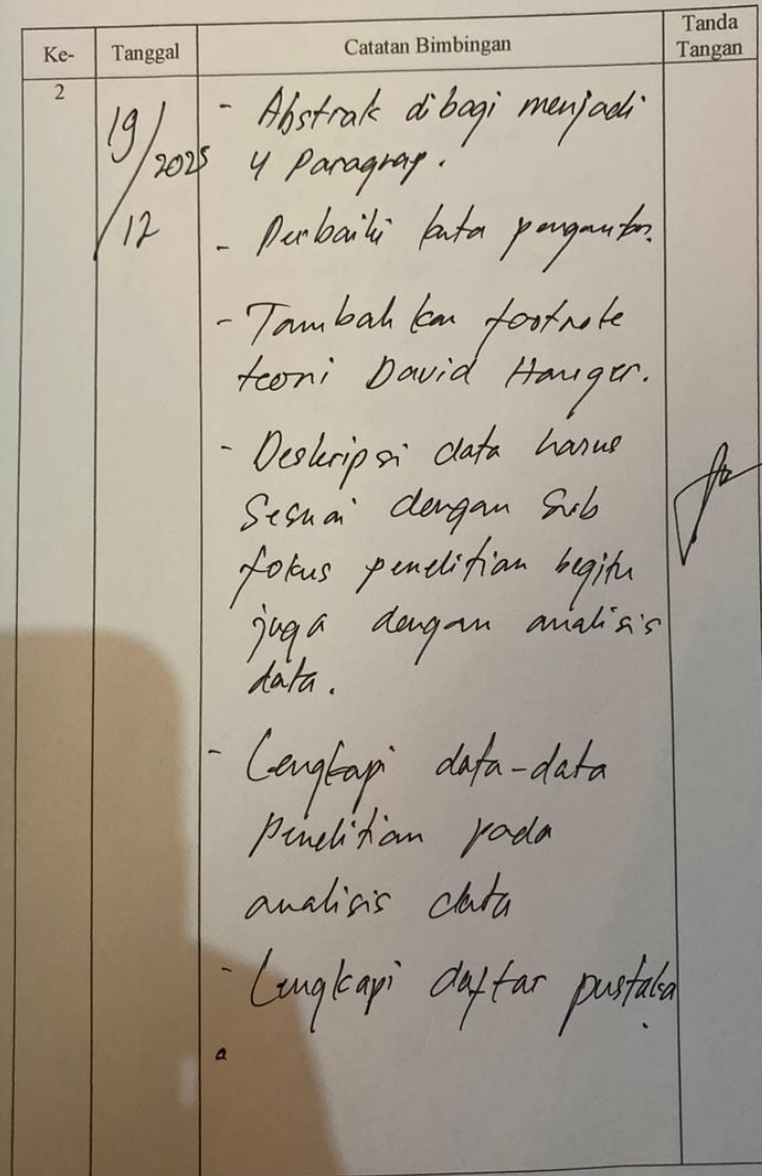 Ke-
Tanggal
Catatan Bimbingan
Tanda
Tangan
2
19/
2025
/12
- Abstrak dibagi menjadi
4 Paragrap.
- Perbaiki kata pengantar.
- Tambahkan footnote
teori David Hunger.
- Deskripsi data harus
Sesuai dengan Sub
fokus penelitian begitu
juga dengan analisis
data.
- Lengkapi data-data
Penelitian pada
analisis data
- Lengkapi daftar pustaka
.